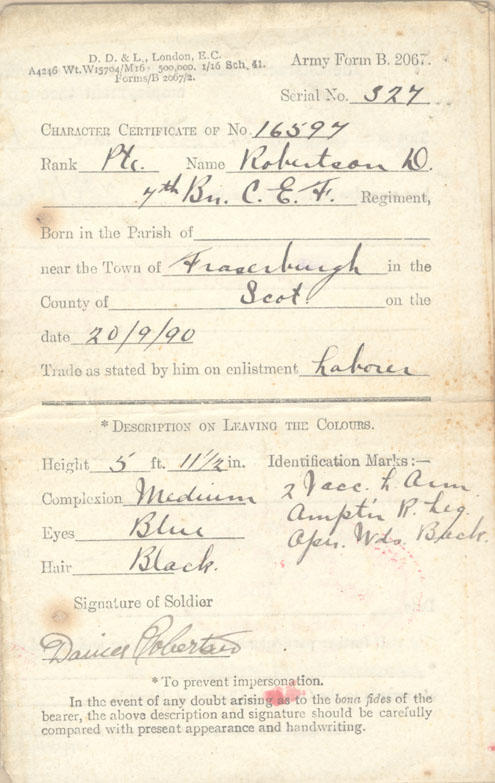 D. D. & L., London, E.C.
A4246 Wt.W15704/M16 500,000. 1/16 Sch. 41.
Forms/B 2067/2.
Army Form B. 2067.
Serial No. 327
CHARACTER CERTIFICATE OF No. 16597
Rank Pte. Name Robertson D.
7th Bn. C. E. F. Regiment,
Born in the Parish of
near the Town of Fraserburgh in the
County of Scot. on the
date 20/9/90
Trade as stated by him on enlistment Laborer
* DESCRIPTION ON LEAVING THE COLOURS.
Height 5 ft. 11 1/2 in. Identification Marks:—
Complexion Medium 2 Vacc. L Arm
Eyes Blue Ampt'n R. Leg.
Hair Black. Opr. Wds. Back.
Signature of Soldier
Robertson
* To prevent impersonation.
In the event of any doubt arising as to the bona fides of the
bearer, the above description and signature should be carefully
compared with present appearance and handwriting.